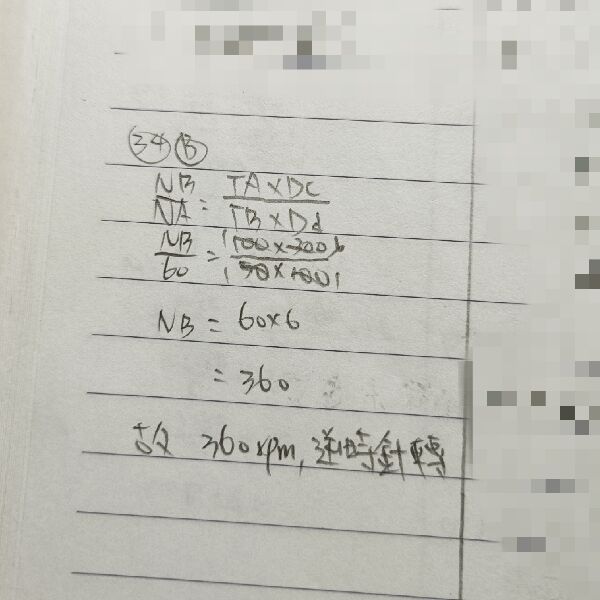 34 B
NB/NA = TA×DC/TB×Dd
NB/60 = 100×300/50×100
NB = 60×6
= 360
故 360rpm, 逆時針轉